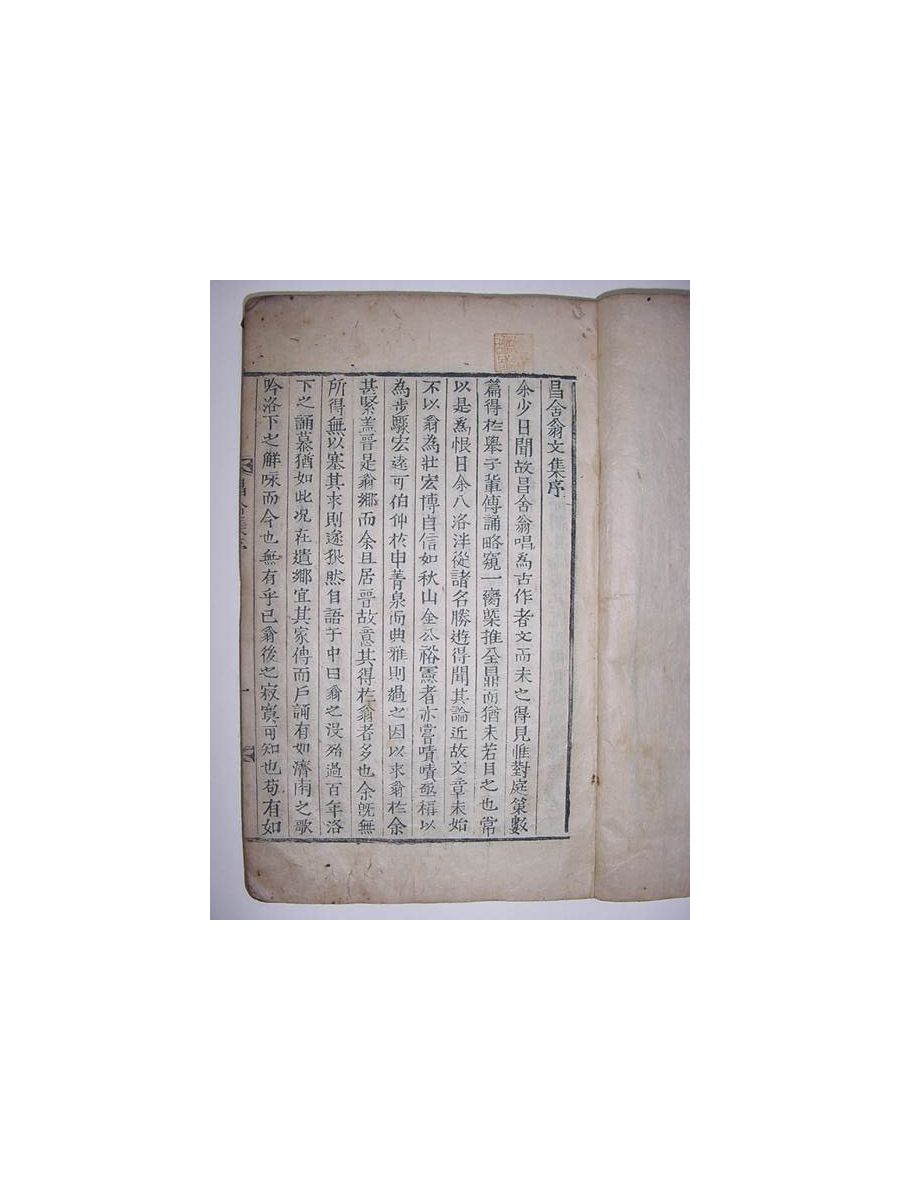 昌舍翁文集序
余少日聞故昌舍翁唱為古作者文而未之得見惟對庭策數
篇得於舉子輩傳誦略窺一臠槩推全鼎而猶未若目之也常
以是為恨日余入洛泮從諸名勝遊得聞其論近故文章未始
不以翁為壯宏博自信如秋山金公裕憲者亦嘗嘖嘖亟稱以
為步驟宏遠可伯仲於申菁泉而典雅則過之因以求翁於余
甚緊盖晉是翁鄉而余且居晉故意其得於翁者多也余旣無
所得無以塞其求則遂狄然自語于中曰翁之没殆過百年洛
下之誦慕猶如此况在遺鄉宜其家傳而戶誦有如濟南之歌
吟洛下之觧𠿝而今也無有乎已翁後之寂寞可知也苟有如
昌舍集序
一